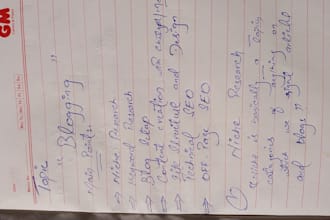 GM
Topic
" Blogging "
Main Points
→ Niche Research
→ Keyword Research
→ Blog Setup
→ Content creation or
→ Site Structure and Design
→ Technical SEO
→ OFF Page SEO
1) Niche Research
niche is basically a topic
categories of anything on
which we articles
and blogs "